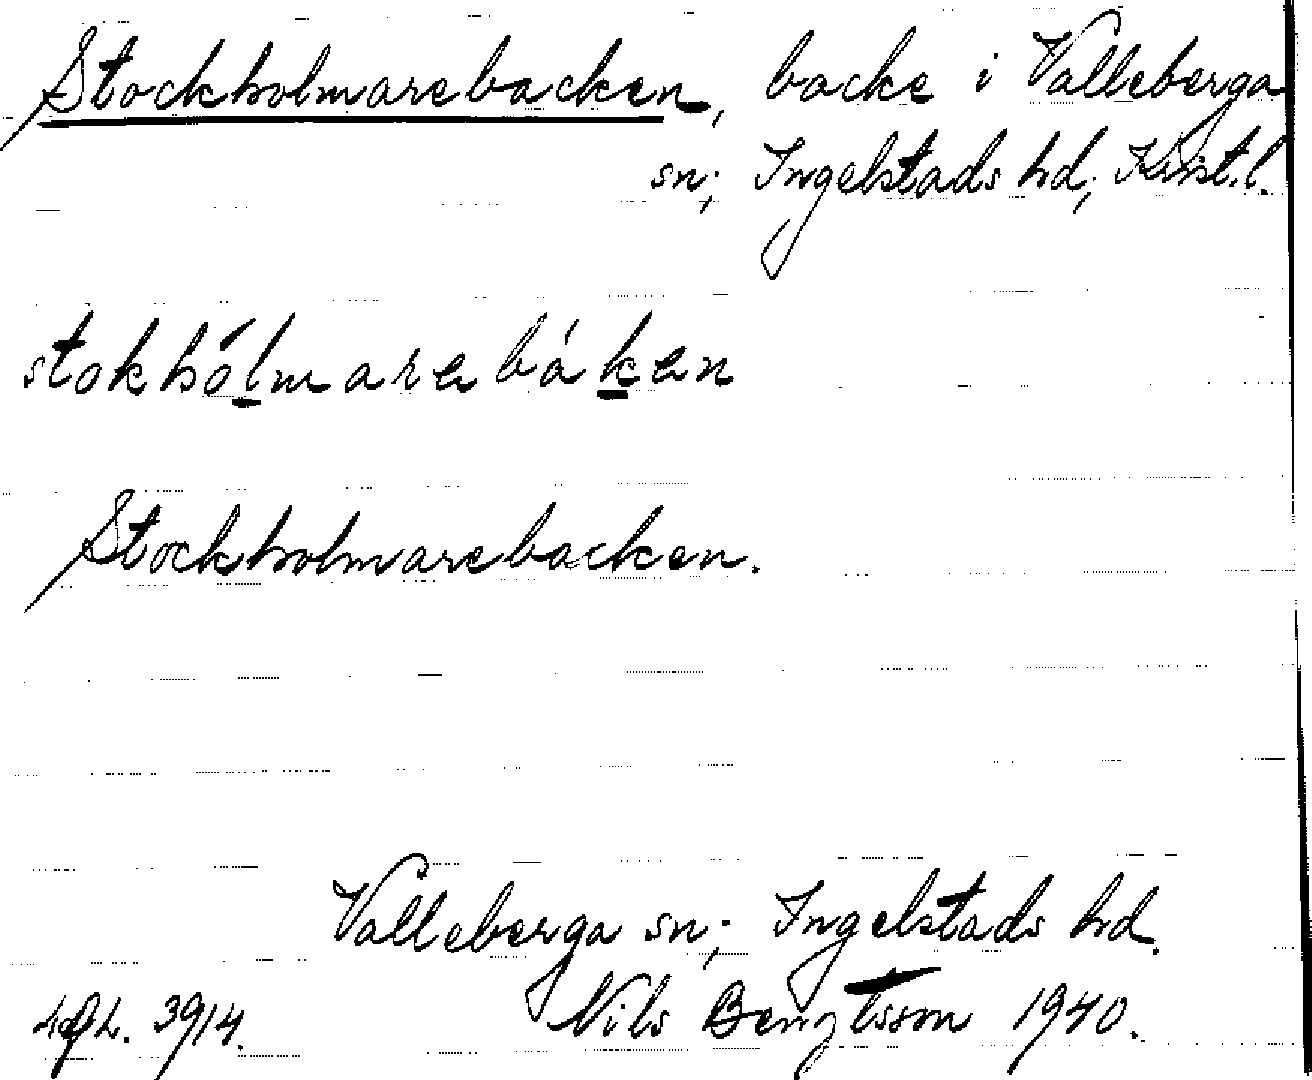 Stockholmarebacken, backe i Valleberga
sn; Ingelstads hd; Krist.l.
stokhólmarebáken
Stockholmarebacken.
Valleberga sn; Ingelstads hd.
3914. Nils Bengtsson 1940.